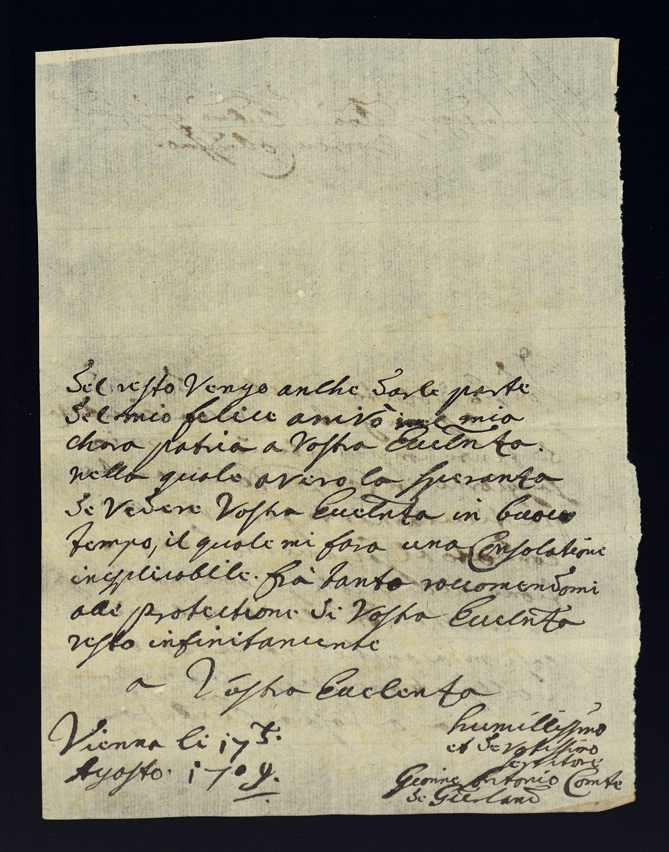 del resto Vengo anche darle parte
del mio felice arrivo mia
chara patria a Vostra Eucelnza.
nella quale avero la speranza
de Vedere Vostra Eucelnza in buon
tempo, il quale mi fara una Consolatione
inesplicabile. frà tanto raccomendomi
alle protectione de Vostra Eucelnza
resto infinitamente
a Vostra Eucelenza
Vienna li 17
Agosto. 1709.
humillissimo
et devotissimo
servitore
Antonio Comte
de